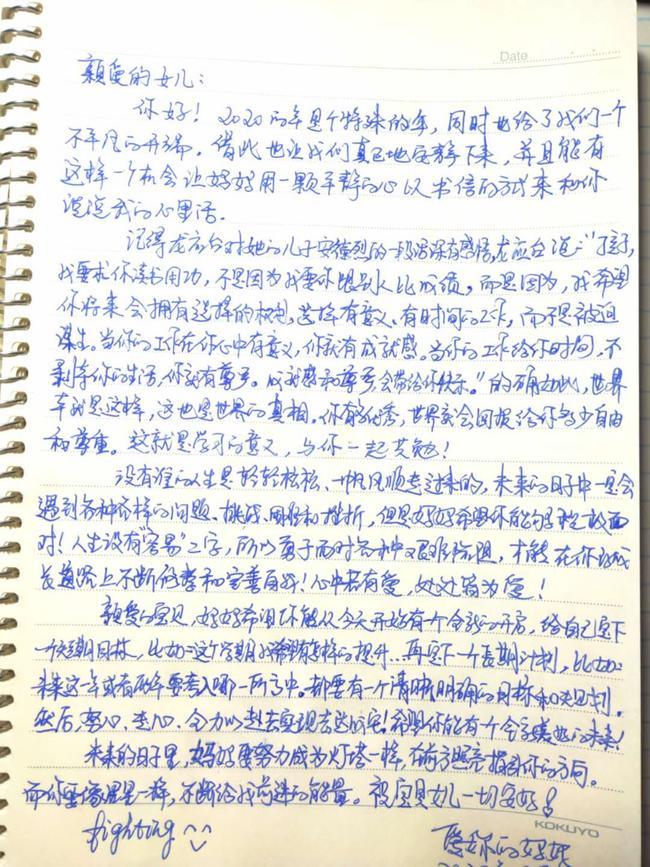 Date
亲爱的女儿：
你好！2020的年是个特殊的年，同时也给了我们一个
不平凡的开端。借此也让我们真正地安静下来，并且能有
这样一个机会让妈妈用一颗平静的心以书信的方式来和你
说说我的心里话。
记得龙应台对她的儿子安德烈的一段话深有感悟，龙应台说："孩子，
我要求你读书用功，不是因为我要你跟别人比成绩。而是因为，我希望
你将来会拥有选择的权利，选择有意义、有时间的工作，而不是被迫
谋生。当你的工作在你心中有意义，你就有成就感。当你的工作给你时间，不
剥夺你的生活，你就有尊严。成就感和尊严，会带给你快乐。"的确如此，世界
就是这样，这也是世界的真相。你有多优秀，世界就会回报给你多少自由
和尊重。这就是学习的意义，与你一起共勉！
没有谁的人生是轻轻松松、一帆风顺走过来的，未来的日子中一定会
遇到各种各样的问题、挑战、困难和挫折，但是妈妈希望你能勇敢面
对！人生没有"容易"二字，所以勇于面对各种艰难险阻，才能在你的成
长道路上不断修养和完善自我！心中若有爱，处处皆为爱！
亲爱的宝贝，妈妈希望你能从今天开始有个全新的开启，给自己定下
一个短期目标，比如：这个学期我希望有怎样的提升...再定下一个长期计划，比如：
未来这一年或者两年要考入哪一所高中。都要有一个清晰明确的目标和规划。
然后，静心、全力以赴去实现它！希望你能有一个全新的未来！
未来的日子里，妈妈要努力成为灯塔一样，在前方照亮指引你的方向。
而你要像星星一样，不断给我前进的能量。祝宝贝女儿一切安好！
fighting
爱你的妈妈
KOKUYO